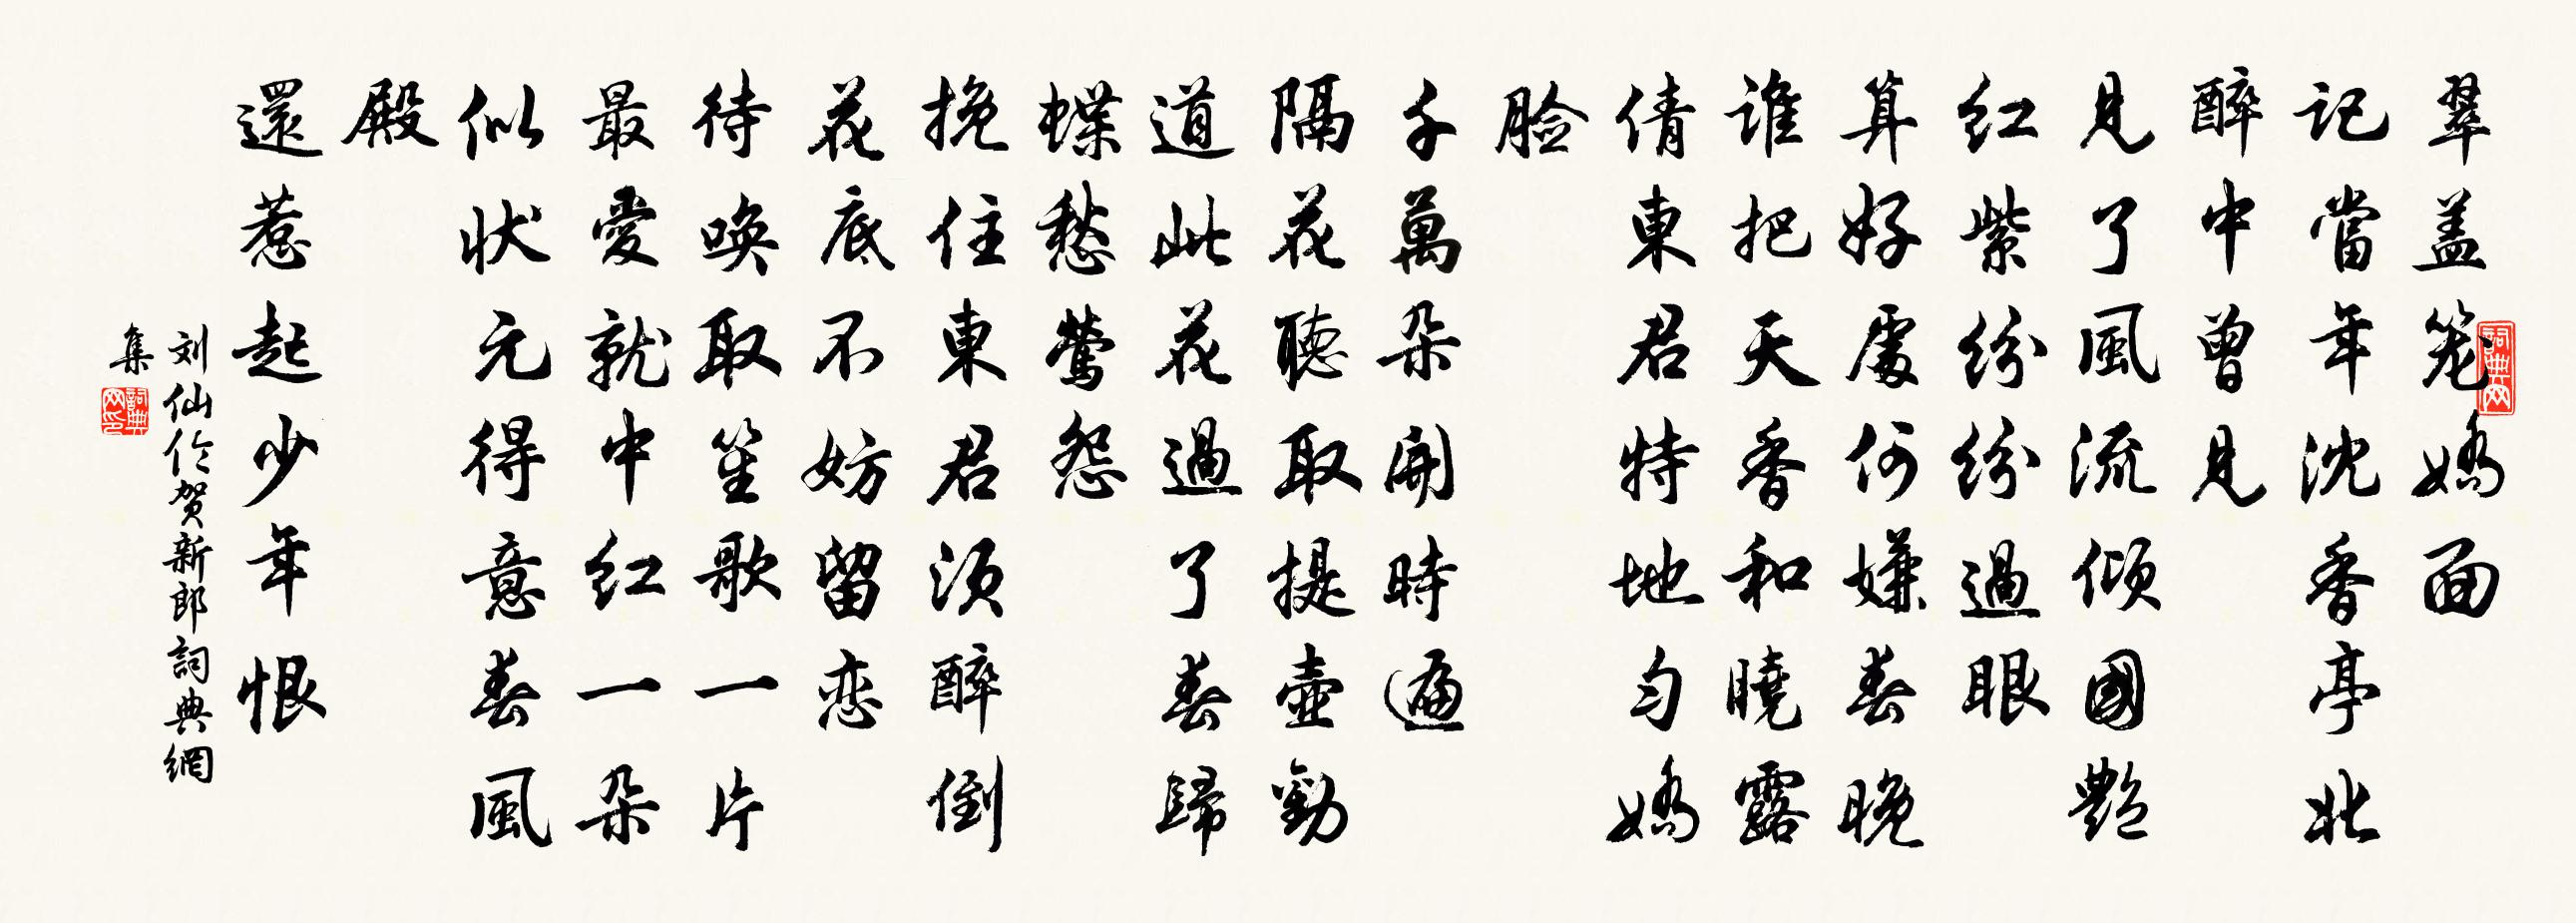 翠盖笼嬌面
記當年沈香亭北
醉中曾見
見了風流倾國艷
红紫紛紛過眼
算好處何嫌春晚
谁把天香和曉露
倩東君特地匀嬌
脸
千萬朵開時遍
隔花聽取提壶勸
道此花過了春歸
蝶愁鶯怨
挽住東君须醉倒
花底不妨留恋
待唤取笙歌一片
最愛就中红一朵
似状元得意春風
殿
還惹起少年恨
刘仙伦贺新郎詞典網
集
詞典网
詞典网印